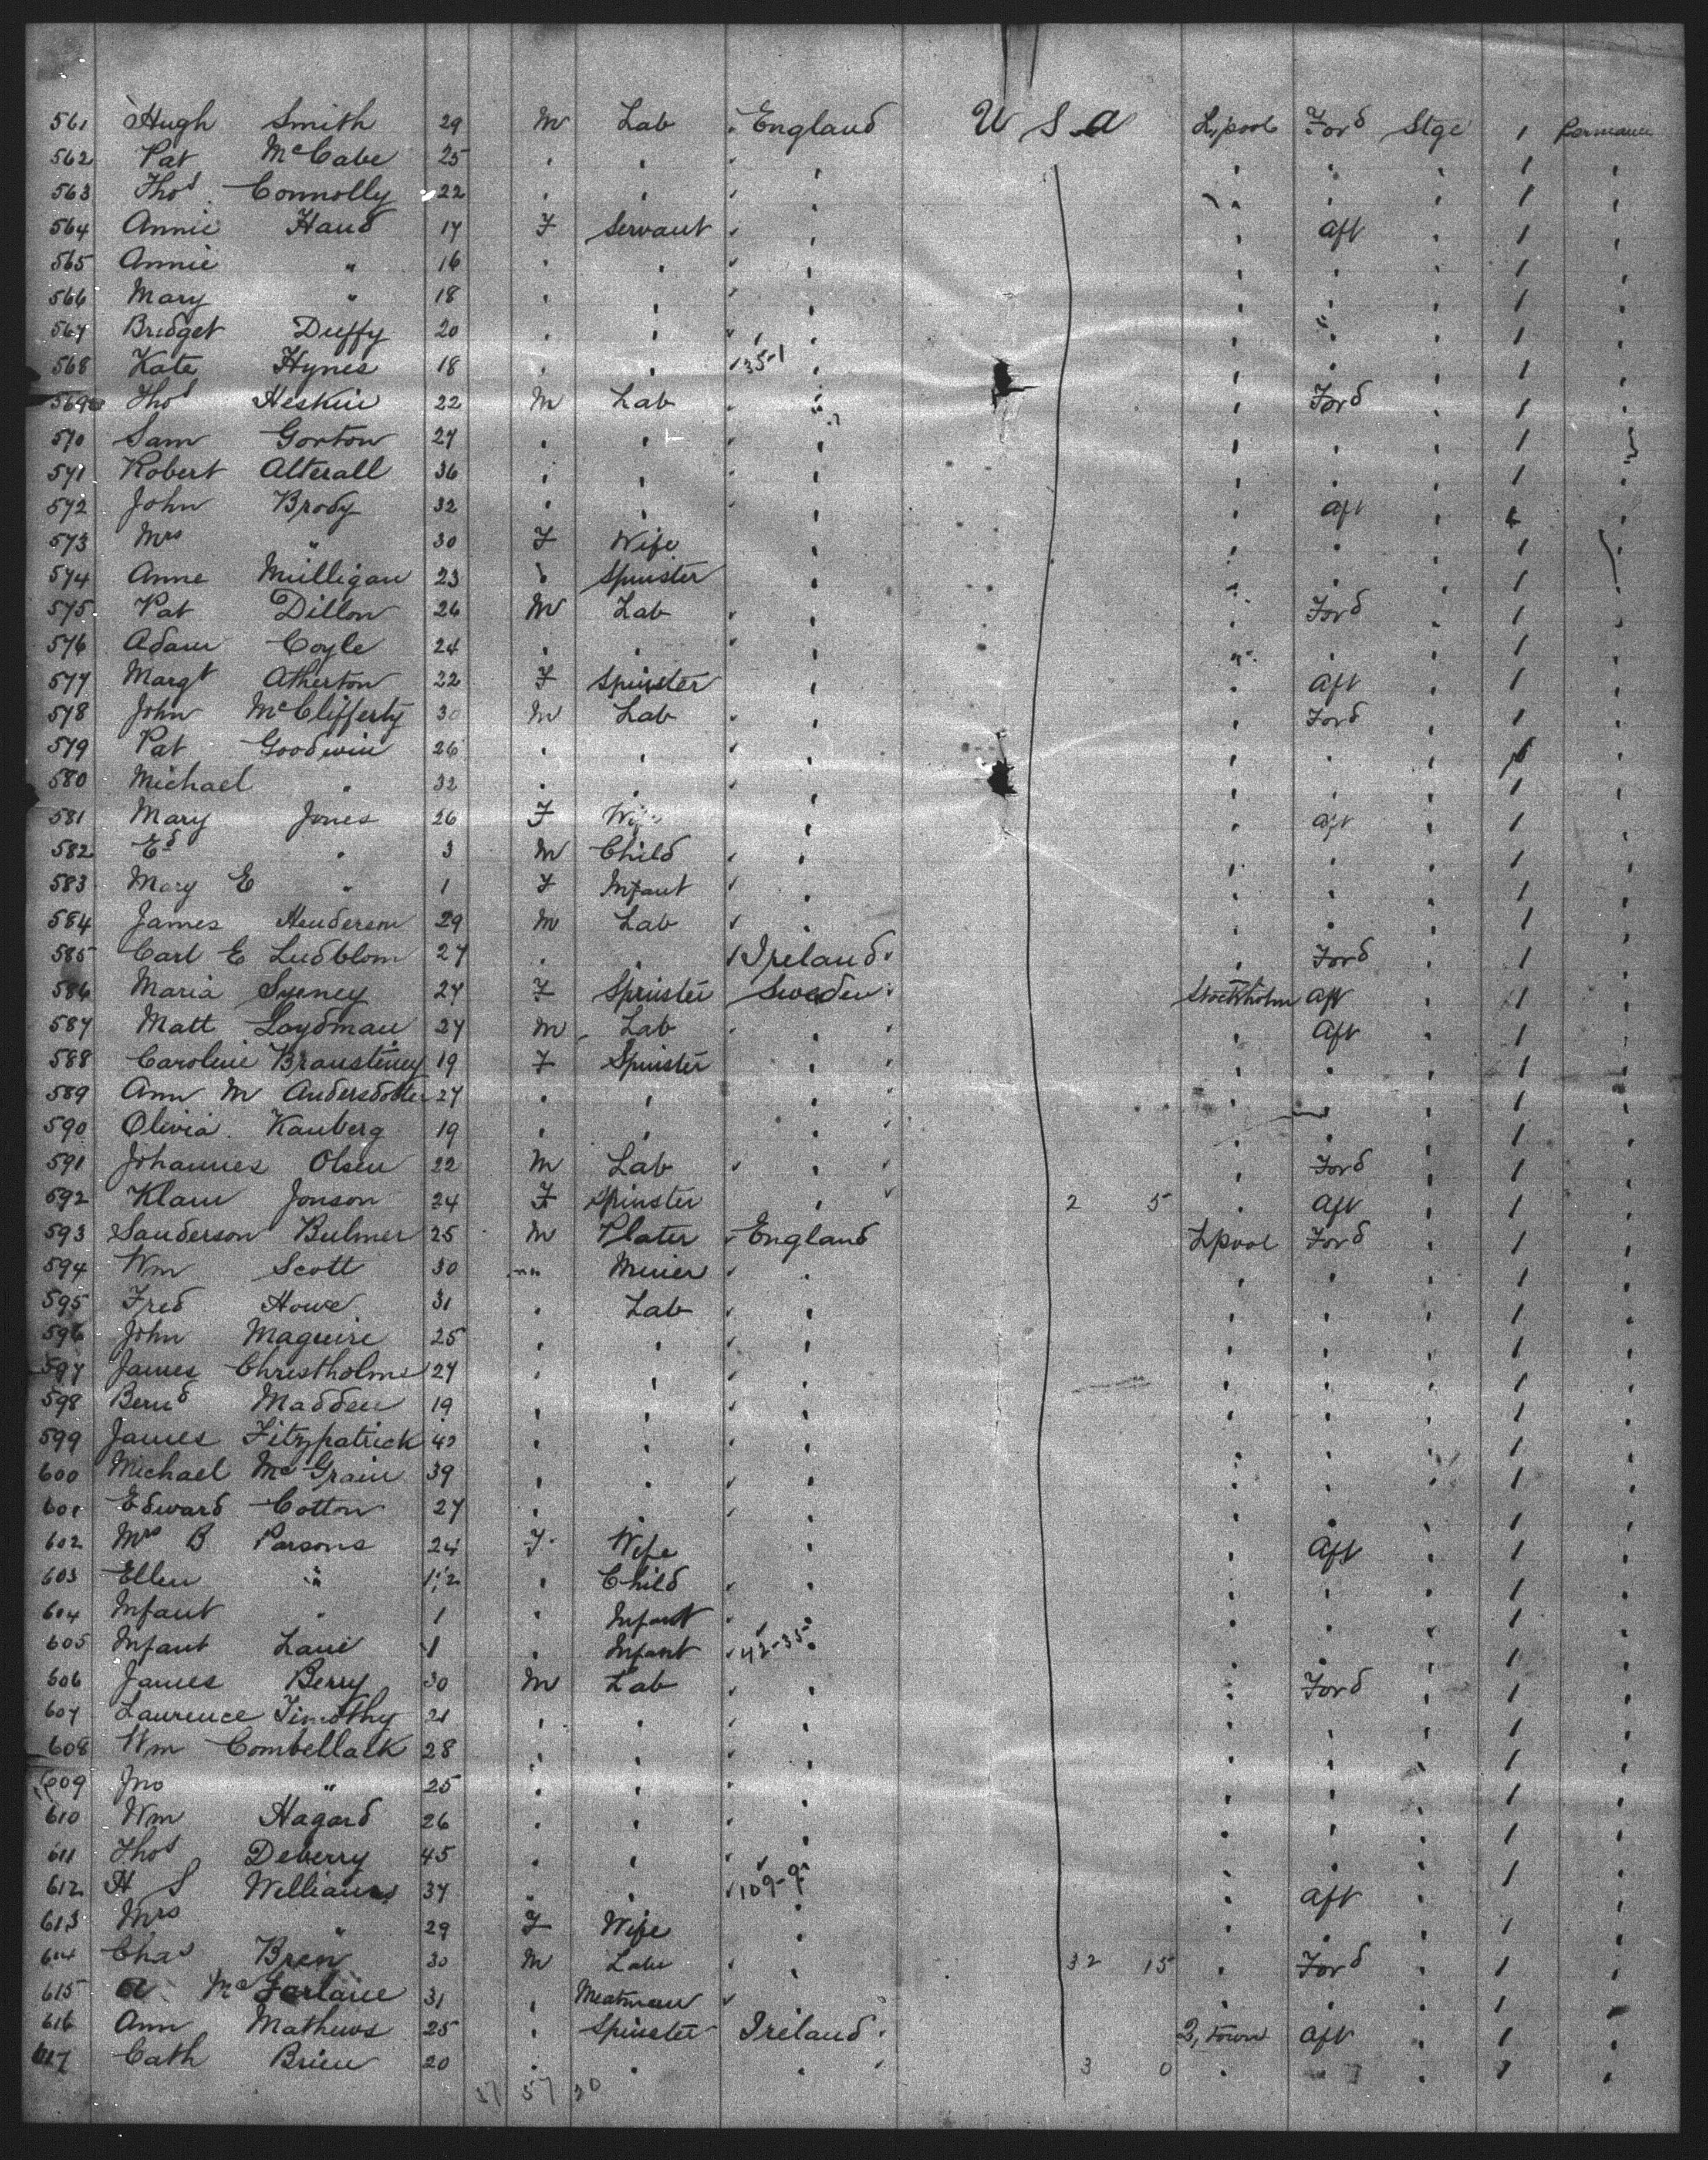 561 Hugh Smith 29 M Lab England U S A L,pool Ford Stge 1
562 Pat McCabe 25 " " " " " " 1 "
563 Thos Connolly 22 " " " " " " 1 "
564 Annie Hand 17 F Servant " " Aft " 1 "
565 Annie " 16 " " " " " " 1 "
566 Mary " 18 " " " " " " 1 "
567 Bridget Duffy 20 " " " " " " 1 "
568 Kate Hynes 18 " " " " " " 1 "
569 Thos Heskin 22 M Lab " " Ford " 1 "
570 Sam Gorton 27 " " " " " " 1 "
571 Robert Alterall 36 " " " " " " 1 "
572 John Brody 32 " " " " Aft " 1 "
573 Mrs " 30 F Wife " " " " 1 "
574 Anne Mulligan 23 " Spinster " " " " 1 "
575 Pat Dillon 26 M Lab " " Ford " 1 "
576 Adam Coyle 24 " " " " " " 1 "
577 Margt Atherton 22 F Spinster " " Aft " 1 "
578 John McClifferty 30 M Lab " " Ford " 1 "
579 Pat Goodwin 26 " " " " " " 1 "
580 Michael " 32 " " " " " " 1 "
581 Mary Jones 26 F Wife " " Aft " 1 "
582 Ed " 3 M Child " " " " 1 "
583 Mary E " 1 F Infant " " " " 1 "
584 James Henderson 29 M Lab " " " " 1 "
585 Carl E Ludblom 27 " " Ireland " Ford " 1 "
586 Maria Syeney 27 F Spinster Sweden Stockholm Aft " 1 "
587 Matt Loydman 27 M Lab " " Aft " 1 "
588 Caroline Brausteney 19 F Spinster " " " " 1 "
589 Ann M Andersdotter 27 " " " " " " 1 "
590 Olivia Kauberg 19 " " " " " " 1 "
591 Johannes Olsen 22 M Lab " " Ford " 1 "
592 Klam Jonson 24 F Spinster " 2 5 " Aft " 1 "
593 Sanderson Bulmer 25 M Plater England Lpool Ford " 1 "
594 Wm Scott 30 " Miner " " " " 1 "
595 Fred Howe 31 " Lab " " " " 1 "
596 John Maguire 25 " " " " " " 1 "
597 James Chrestholms 27 " " " " " " 1 "
598 Bernd Madden 19 " " " " " " 1 "
599 James Fitzpatrick " " " " " " 1 "
600 Michael McGrain 39 " " " " " " 1 "
601 Edward Cotton 27 " " " " " " 1 "
602 Mrs B Parsons 24 F Wife " " Aft " 1 "
603 Ellen " " Child " " " " 1 "
604 Infant " 1 " Infant " " " " 1 "
605 Infant Lane 1 " Infant 42-35 " " " 1 "
606 James Berry 30 M Lab " " Ford " 1 "
607 Laurence Timothy 21 " " " " " " 1 "
608 Wm Combellack 28 " " " " " " 1 "
609 Jno " 25 " " " " " " 1 "
610 Wm Hagard 26 " " " " " " 1 "
611 Thos Deberry 45 " " " " " " 1 "
612 H S Williams 37 " " 109-9 " Aft "
613 Mrs " 29 F Wife " " " " 1 "
614 Chas Bren 30 M Lab " 32 15 " Ford " 1 "
615 A McFarlane 31 " Meatman " " " " 1 "
616 Ann Mathews 25 " Spinster Ireland Q,town Aft " 1 "
617 Cath Brien 20 " " " 3 0 " " 1 "
57 57 20